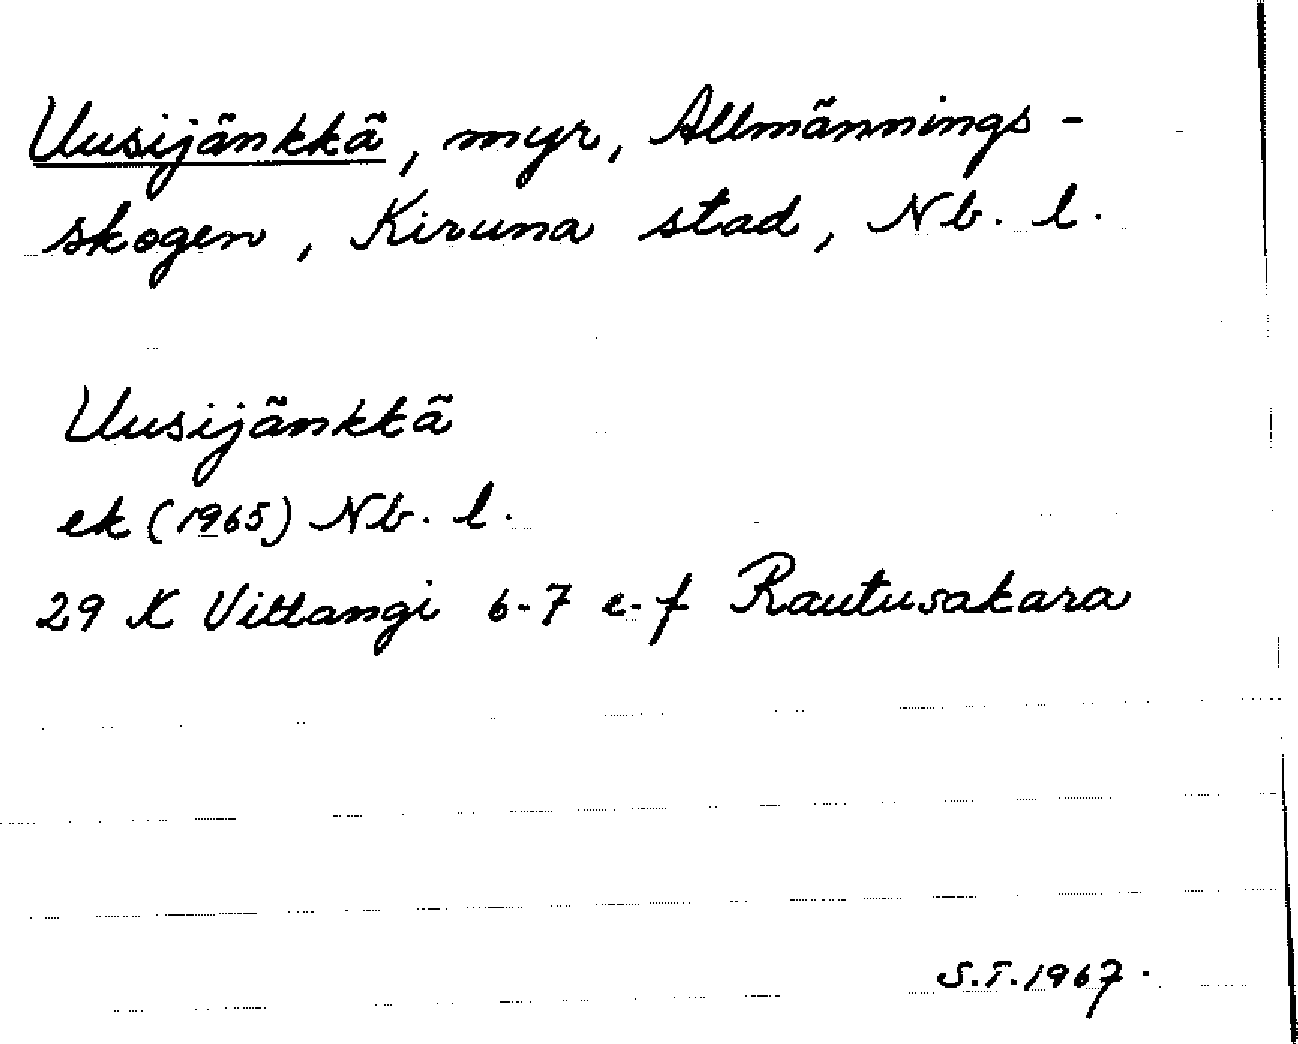 Uusijänkkä, myr, Allmännings-
skogen, Kiruna stad, Nb. l.
Uusijänkkä
ek (1965) Nb. l.
29 K Vittangi 6-7 e-f Rautusakara
S.T. 1967.